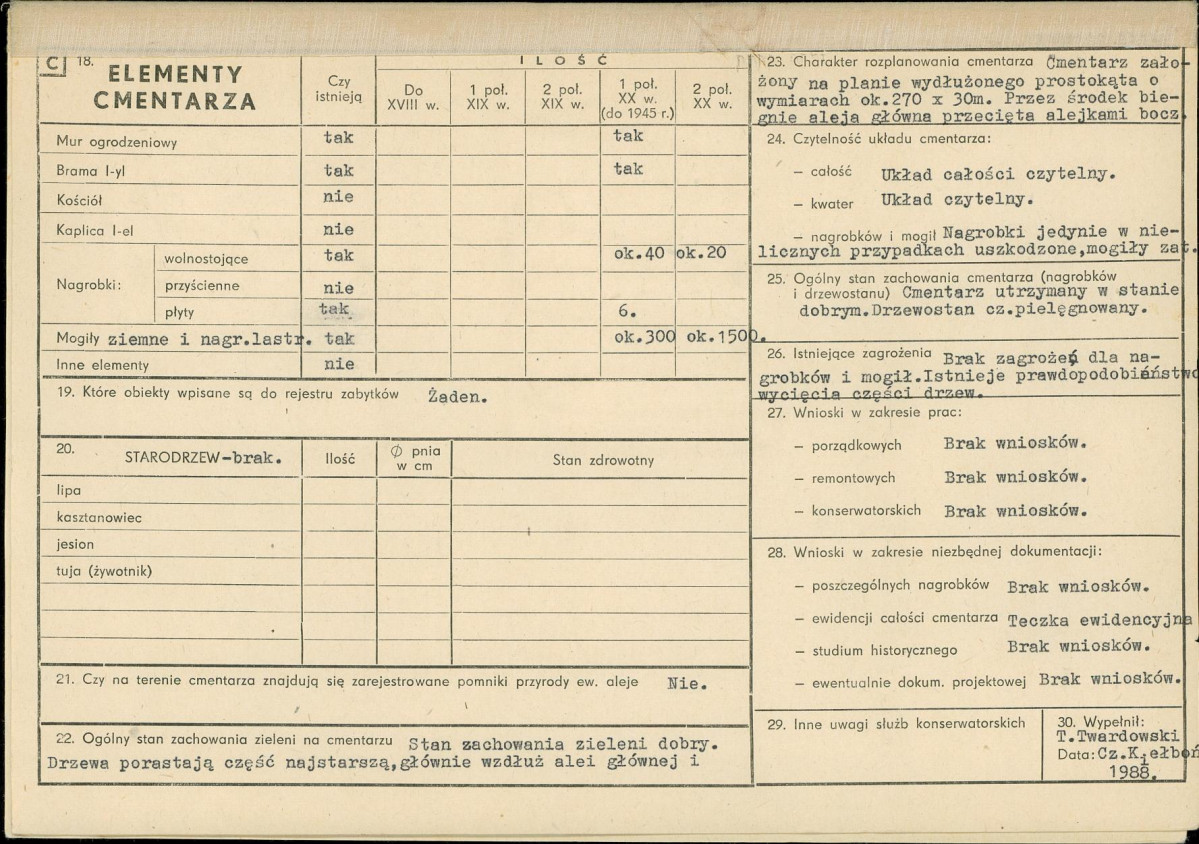 C 18. ELEMENTY CMENTARZA
Czy istnieją
ILOŚĆ
Do XVIII w.
1 poł. XIX w.
2 poł. XIX w.
1 poł. XX w. (do 1945 r.)
2 poł. XX w.
Mur ogrodzeniowy tak tak
Brama I-yl tak tak
Kościół nie
Kaplica I-el nie
Nagrobki:
wolnostojące tak ok.40 ok.20
przyścienne nie
płyty tak 6.
Mogiły ziemne i nagr.lastr. tak ok.300 ok.1500.
Inne elementy nie
19. Które obiekty wpisane są do rejestru zabytków Żaden.
20. STARODRZEW-brak. Ilość Ø pnia w cm Stan zdrowotny
lipa
kasztanowiec
jesion
tuja (żywotnik)
21. Czy na terenie cmentarza znajdują się zarejestrowane pomniki przyrody ew. aleje Nie.
22. Ogólny stan zachowania zieleni na cmentarzu Stan zachowania zieleni dobry.
Drzewa porastają część najstarszą,głównie wzdłuż alei głównej i
23. Charakter rozplanowania cmentarza Cmentarz zało-
żony na planie wydłużonego prostokąta o
wymiarach ok.270 x 30m. Przez środek bie-
gnie aleja główna przecięta alejkami bocz.
24. Czytelność układu cmentarza:
– całość Układ całości czytelny.
– kwater Układ czytelny.
– nagrobków i mogił Nagrobki jedynie w nie-
licznych przypadkach uszkodzone,mogiły zat.
25. Ogólny stan zachowania cmentarza (nagrobków
i drzewostanu) Cmentarz utrzymany w stanie
dobrym.Drzewostan cz.pielęgnowany.
26. Istniejące zagrożenia Brak zagrożeń dla na-
grobków i mogił.Istnieje prawdopodobieństwo
wycięcia części drzew.
27. Wnioski w zakresie prac:
– porządkowych Brak wniosków.
– remontowych Brak wniosków.
– konserwatorskich Brak wniosków.
28. Wnioski w zakresie niezbędnej dokumentacji:
– poszczególnych nagrobków Brak wniosków.
– ewidencji całości cmentarza Teczka ewidencyjna
– studium historycznego Brak wniosków.
– ewentualnie dokum. projektowej Brak wniosków.
29. Inne uwagi służb konserwatorskich
30. Wypełnił:
T.Twardowski
Data: Cz.Kiełboń
1988.